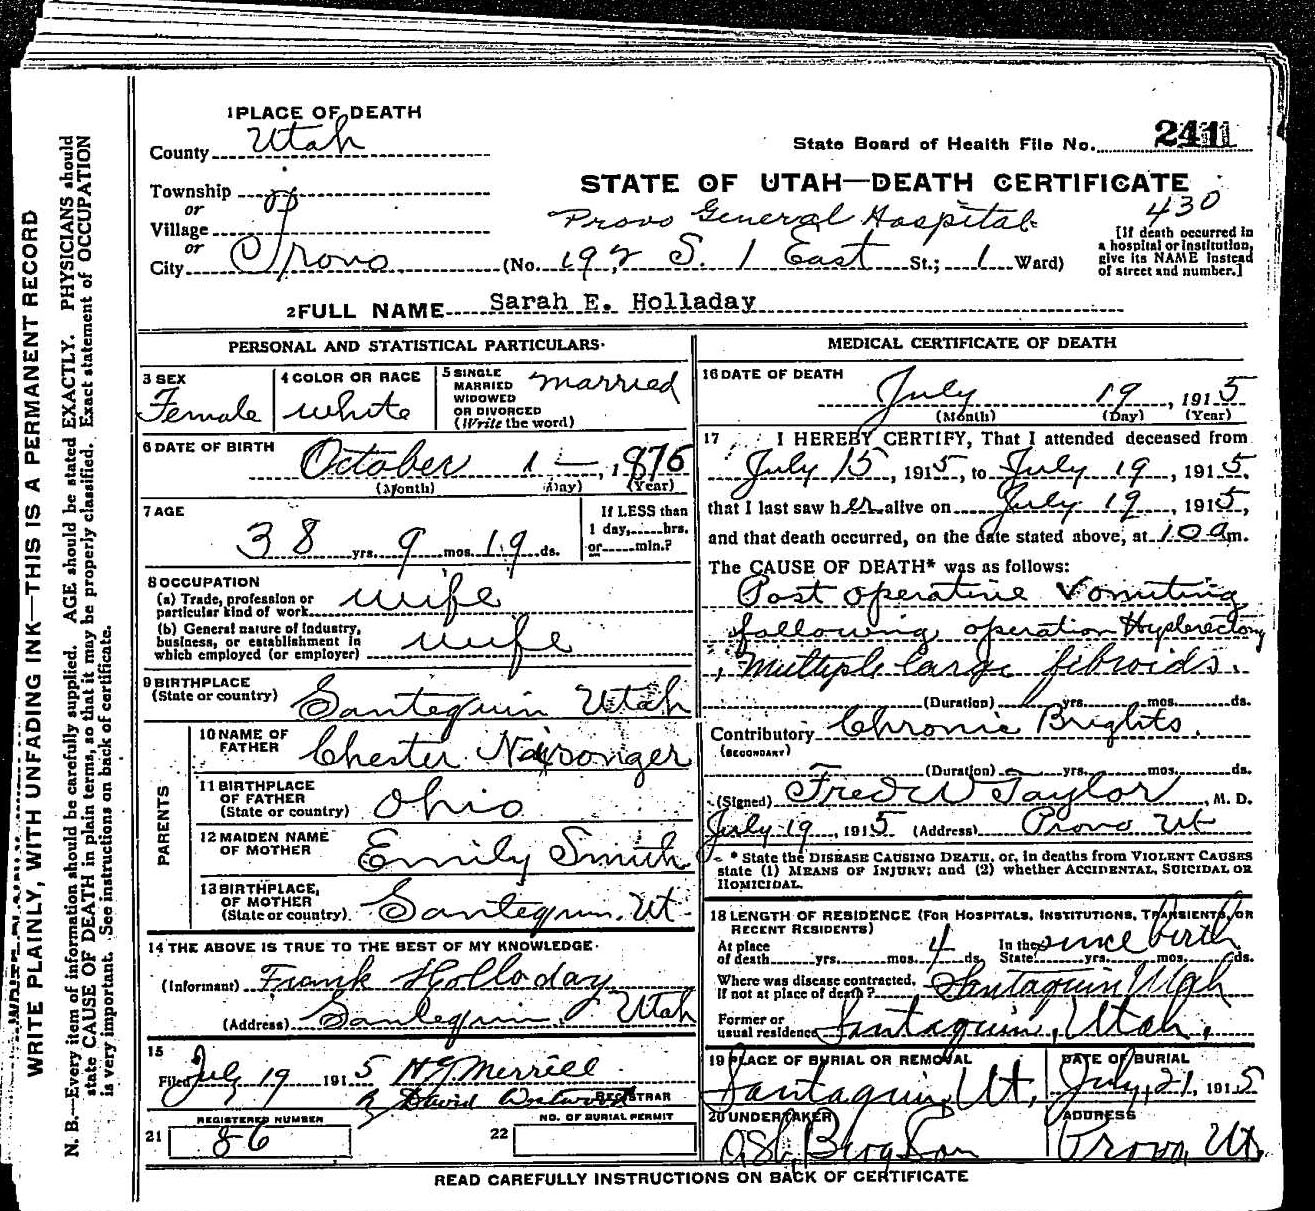 WRITE PLAINLY, WITH UNFADING INK—THIS IS A PERMANENT RECORD
N. B.—Every item of information should be carefully supplied. AGE should be stated EXACTLY. PHYSICIANS should
state CAUSE OF DEATH in plain terms, so that it may be properly classified. Exact statement of OCCUPATION
is very important. See instructions on back of certificate.
1 PLACE OF DEATH
County Utah
State Board of Health File No. 241
Township
or
Village
or
City Provo
STATE OF UTAH—DEATH CERTIFICATE
430
Provo General Hospital
(No. 192 S. 1 East St.; 1 Ward)
[If death occurred in
a hospital or institution,
give its NAME instead
of street and number.]
2 FULL NAME Sarah E. Holladay
PERSONAL AND STATISTICAL PARTICULARS
3 SEX
Female
4 COLOR OR RACE
white
5 SINGLE
MARRIED
WIDOWED
OR DIVORCED
(Write the word)
married
6 DATE OF BIRTH
October 1 — , 1876
(Month) (Day) (Year)
7 AGE
38 yrs. 9 mos. 19 ds.
If LESS than
1 day, hrs.
or min.?
8 OCCUPATION
(a) Trade, profession or
particular kind of work wife
(b) General nature of industry,
business, or establishment in
which employed (or employer) wife
9 BIRTHPLACE
(State or country) Santaquin Utah
PARENTS
10 NAME OF
FATHER Chester
11 BIRTHPLACE
OF FATHER
(State or country) Ohio
12 MAIDEN NAME
OF MOTHER Emily Smith
13 BIRTHPLACE,
OF MOTHER
(State or country) Santaquin, Ut.
14 THE ABOVE IS TRUE TO THE BEST OF MY KNOWLEDGE
(Informant) Frank Holladay
(Address) Santaquin, Utah
15
Filed July 19 1915 H. J. Merrill
David REGISTRAR
REGISTERED NUMBER
21 86
NO. OF BURIAL PERMIT
22
MEDICAL CERTIFICATE OF DEATH
16 DATE OF DEATH
July 19, 1915
(Month) (Day) (Year)
17 I HEREBY CERTIFY, That I attended deceased from
July 15, 1915, to July 19, 1915,
that I last saw her alive on July 19, 1915,
and that death occurred, on the date stated above, at 10 am.
The CAUSE OF DEATH* was as follows:
Post operative Vomiting
following operation Hysterectomy
, multiple large fibroids.
(Duration) yrs. mos. ds.
Contributory Chronic Brights.
(SECONDARY)
(Duration) yrs. mos. ds.
(Signed) Fred W Taylor, M. D.
July 19, 1915 (Address) Provo Ut
* State the DISEASE CAUSING DEATH, or, in deaths from VIOLENT CAUSES
state (1) MEANS OF INJURY; and (2) whether ACCIDENTAL, SUICIDAL OR
HOMICIDAL.
18 LENGTH OF RESIDENCE (FOR HOSPITALS, INSTITUTIONS, TRANSIENTS, OR
RECENT RESIDENTS)
At place
of death yrs. mos. 4 ds.
In the
State since birth yrs. mos. ds.
Where was disease contracted,
If not at place of death? Santaquin Utah
Former or
usual residence Santaquin, Utah.
19 PLACE OF BURIAL OR REMOVAL
Santaquin, Ut.
DATE OF BURIAL
July, 21, 1915
20 UNDERTAKER
ADDRESS
Provo, Ut.
READ CAREFULLY INSTRUCTIONS ON BACK OF CERTIFICATE